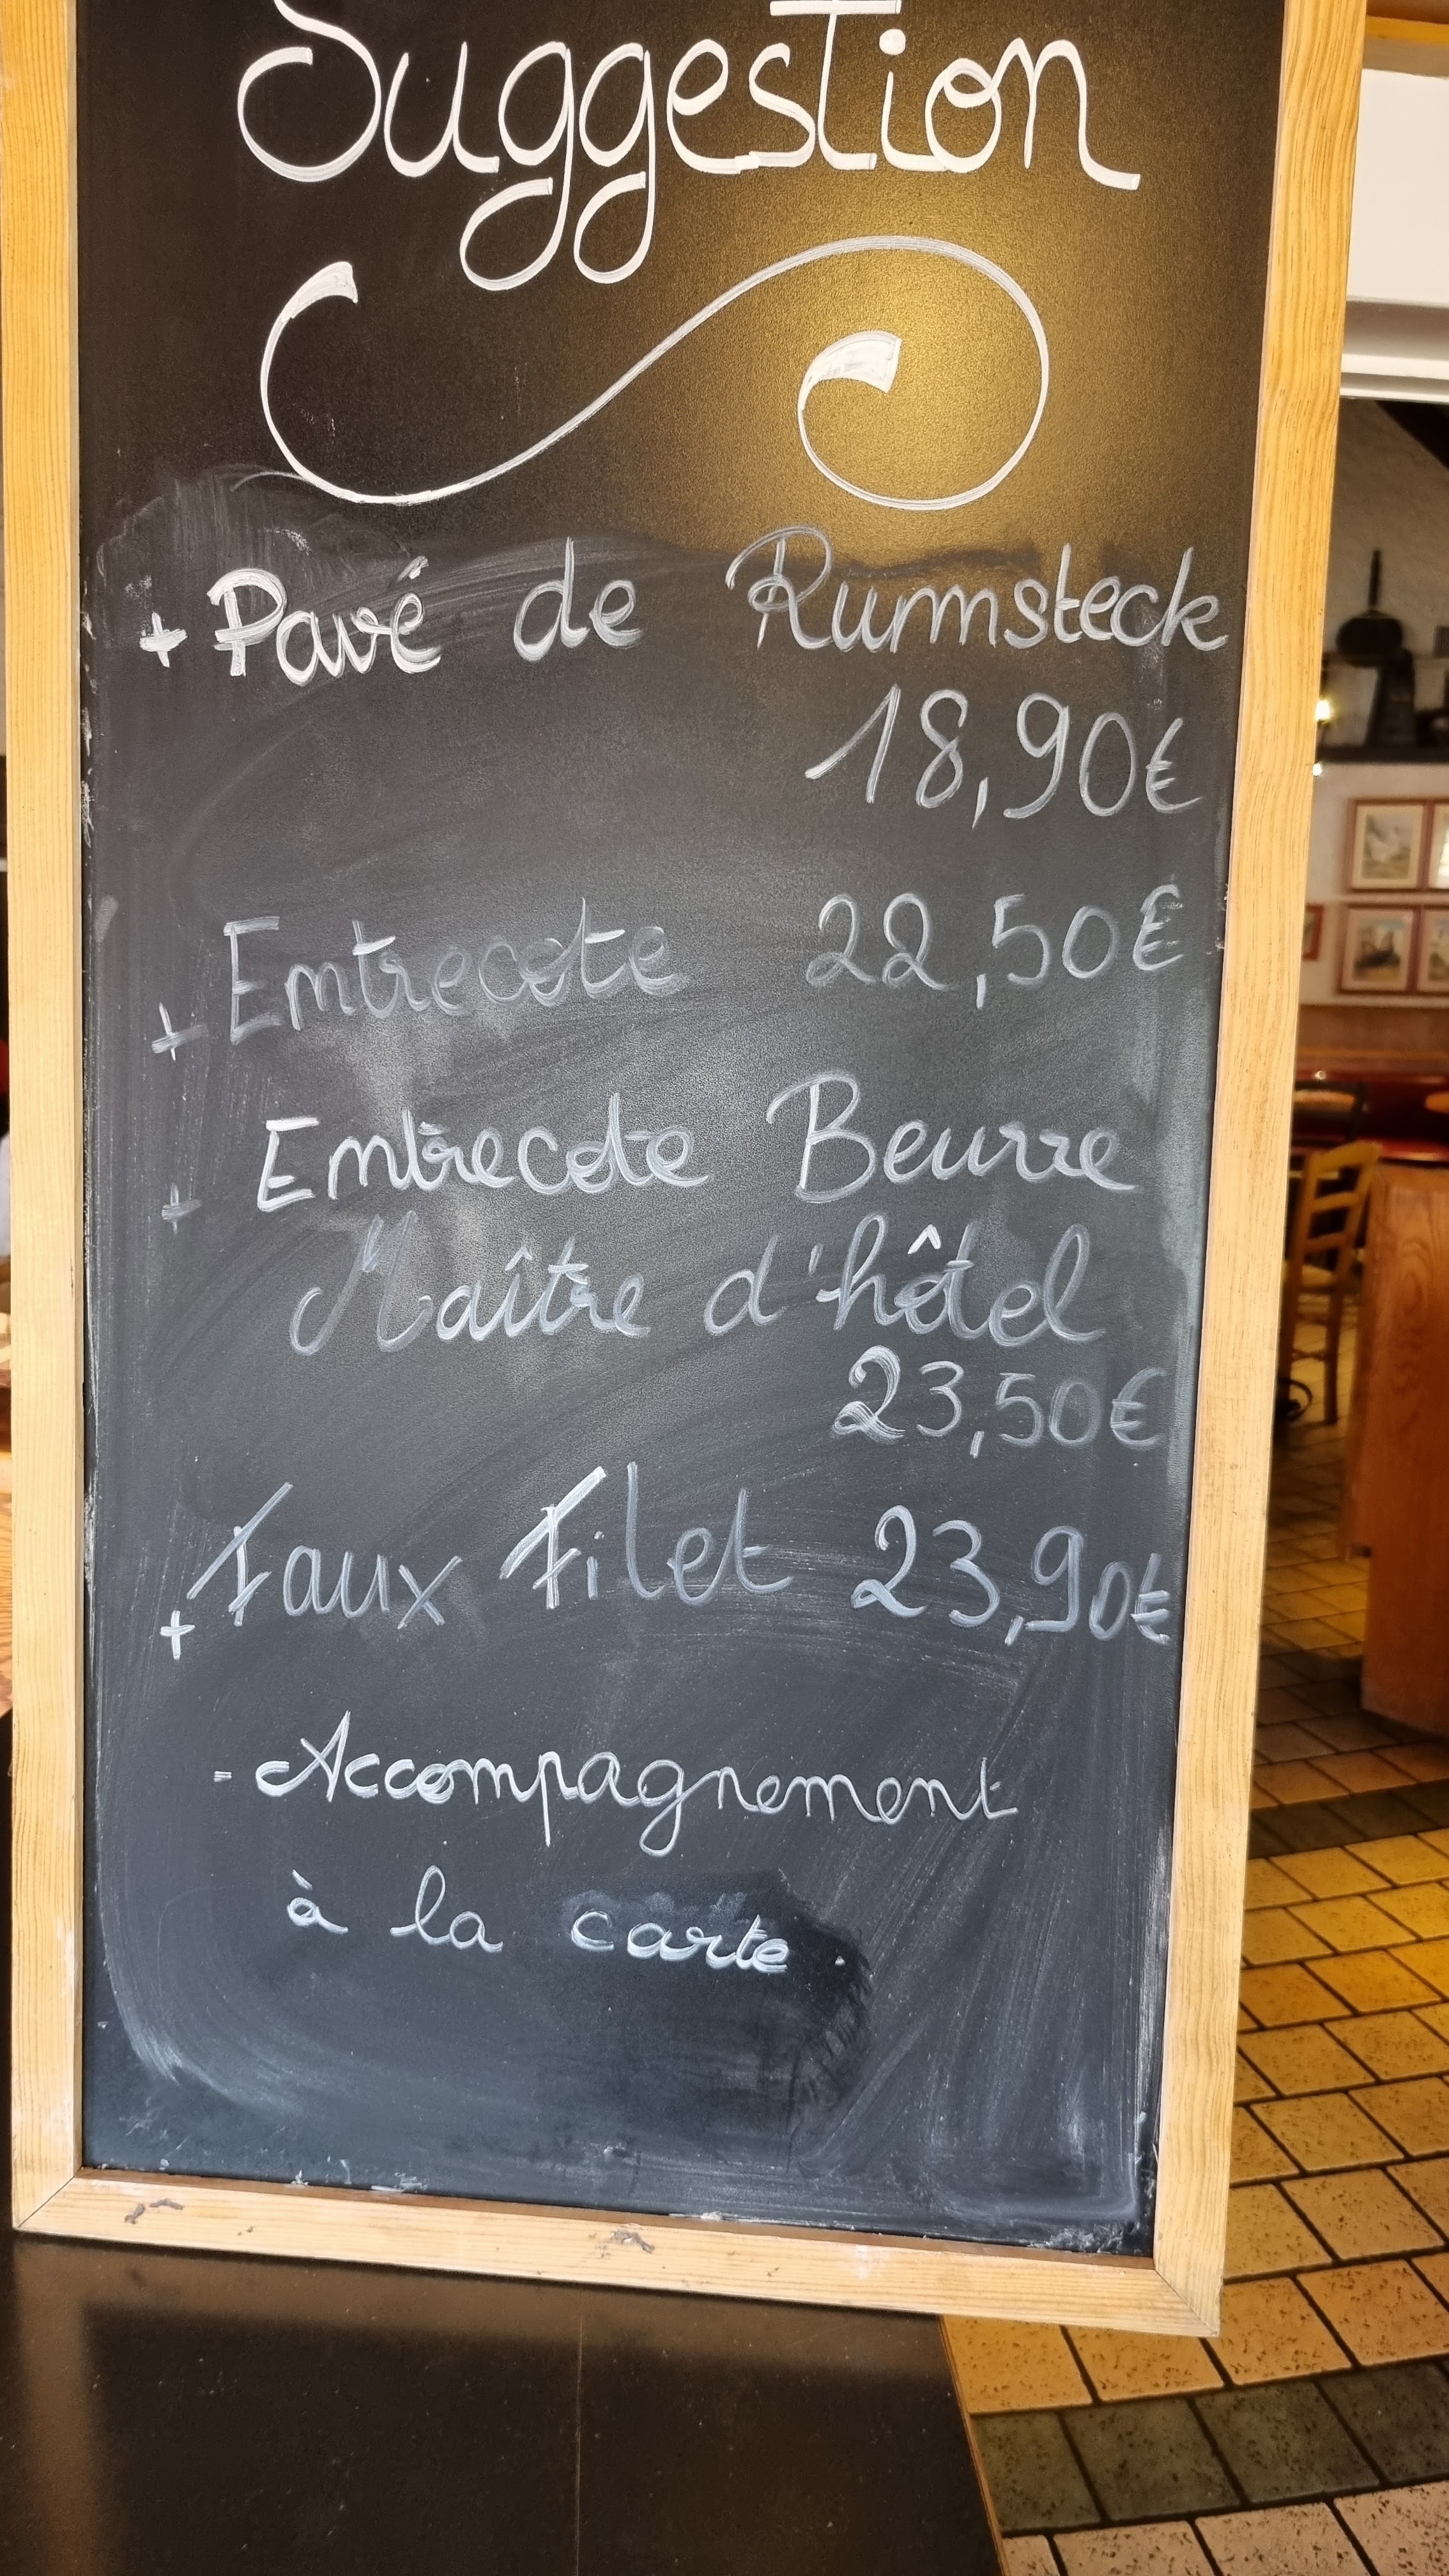 Suggestion
+ Pavé de Rumsteck
18,90€
+ Entrecote 22,50€
+ Entrecote Beurre
Maître d'hôtel
23,50€
+ Faux Filet 23,90€
- Accompagnement
à la carte.